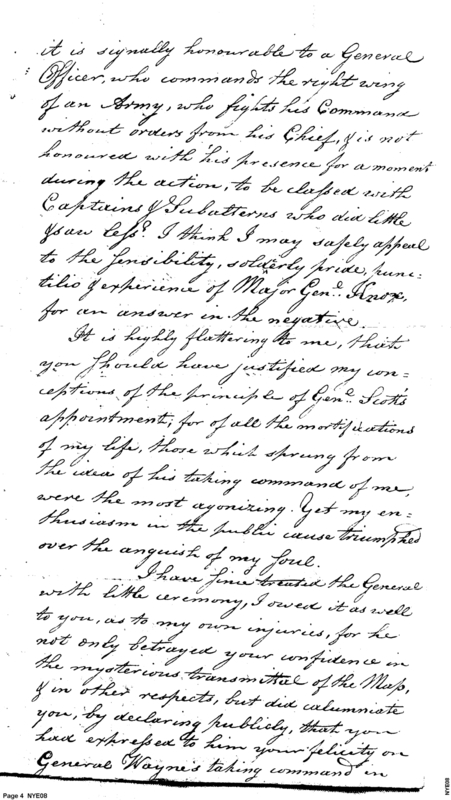 it is signally honourable to a General
Officer, who commands the right wing
of an Army, who fights his Command
without orders from his Chief, & is not
honoured with his presence for a moment
during the action, to be classed with
Captains & Subalterns who did little
& saw less? I think I may safely appeal
to the sensibility, soldierly pride, punc-
tilio & experience of Major Genl. Knox,
for an answer in the negative.
It is highly flattering to me, that
you should have justified my con=
ceptions of the principle of Genl. Scott's
appointment; for of all the mortifications
of my life, those which sprung from
the idea of his taking command of me,
were the most agonizing. Yet my en=
thusiasm in the public cause triumphed
over the anguish of my soul.
I have since treated the General
with little ceremony, I owed it as well
to you, as to my own injuries, for he
not only betrayed your confidence in
the mysterious transmittal of the Map,
& in other respects, but did calumniate
you, by declaring publicly, that you
had expressed to him your felicity on
General Wayne's taking command in
Page 4 NYE08
NYE08